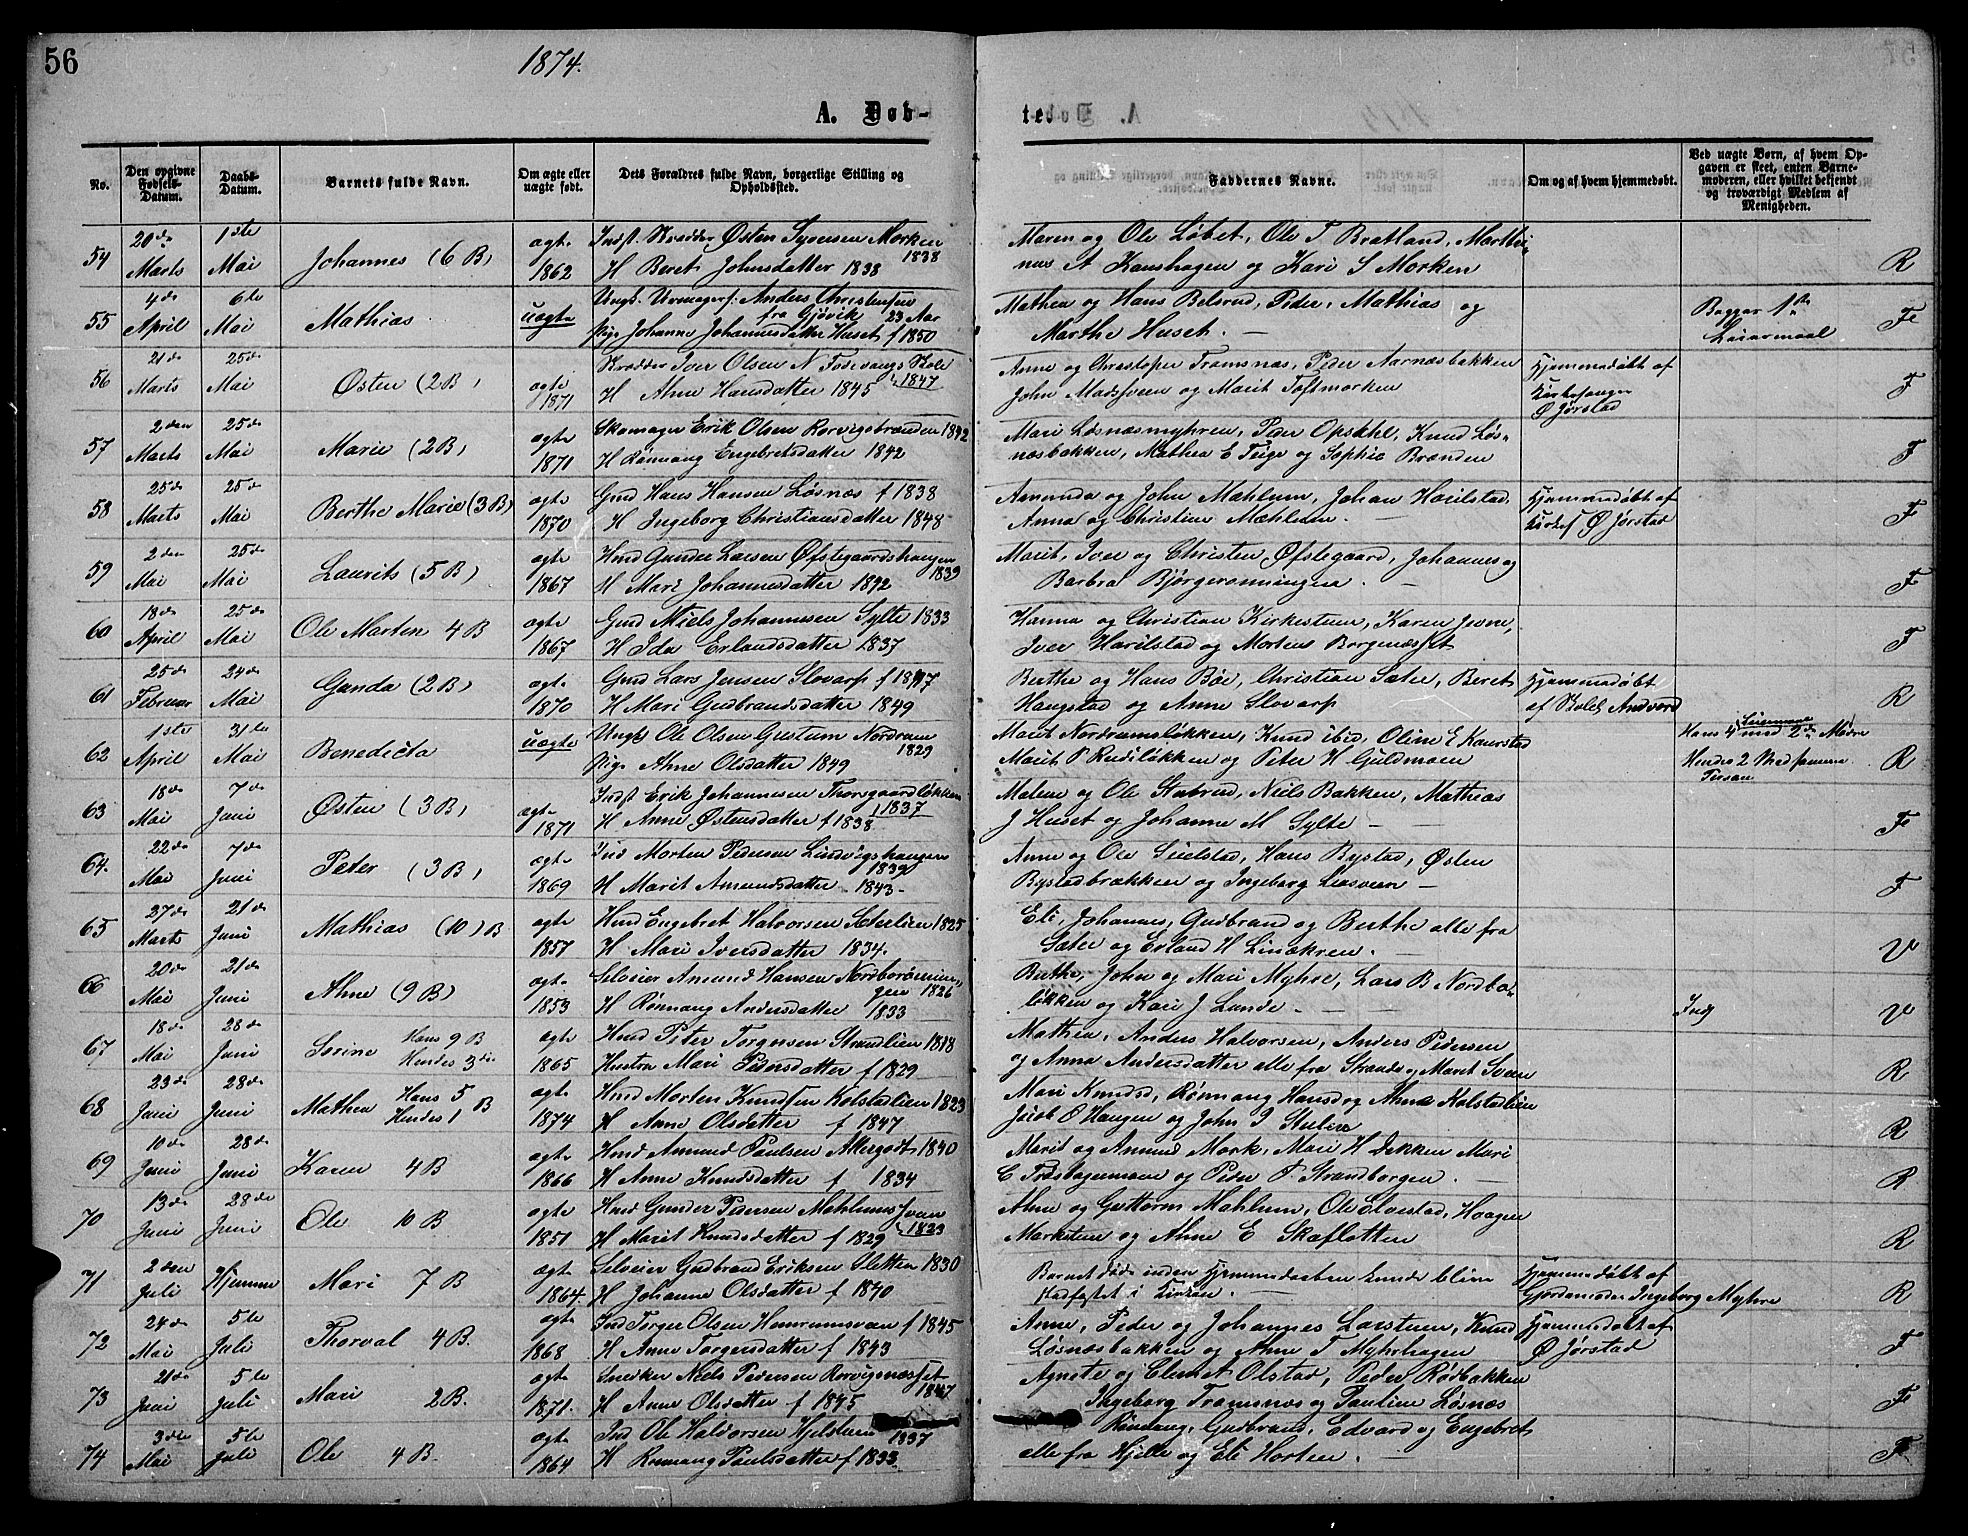 56
1874.
A. Døb-
te.
No.
Den opgivne Fødsels-Datum.
Daabs-Datum.
Barnets fulde Navn.
Om ægte eller uægte født.
Dets Forældres fulde Navn, borgerlige Stilling og Opholdssted.
Faddernes Navne.
Om og af hvem hjemmedøbt.
Ved uægte Børn, af hvem Opgaven er skeet, enten Barnemoderen, eller hvilket bekjendt og troværdigt Medlem af Menigheden.
54 20de Marts 1ste Mai Johannes (6 B) ægte 1862 Indst. Skrædder Østen Syversen Morken 1838
H Beret Johnsdatter 1838
Maren og Ole Løbet, Ole T Bratland, Marthi-
nus A Kanshagen og Kari S Morken R
55 4de April 6te Mai Mathias uægte Ungk. Urmagers. Anders Christensen fra Gjøvik 23 Aar
Pige Johanne Johannesdatter Huset f 1850
Mathea og Hans Belsrud, Peder, Mathias og
Marthe Huset. — Begges 1ste Leiermaal F
56 21de Marts 25de Mai Østen (2 B) ægte 1871 Skrædder Iver Olsen N Fodvangs Skole 1847
H Ahne Hansdatter 1845
Anne og Christopher Tromsnæs, Peder Aarnæsbakken
John Madssveen og Marit Toftmorken
Hjemmedøbt af Kirkesanger Ø Jørstad F
57 2den Marts 25de Mai Marie (2 B) ægte 1871 Skomager Erik Olsen Rorvigsbrænden 1842
H Rønnaug Engebretsdatter 1842
Mari Løsnæsmyhren, Peder Opsahl, Knud Løs-
næsbakken, Mathea E Teige og Sophie Brænden F
58 25de Marts 25de Mai Berthe Marie (3 B) ægte 1870 Gmd Hans Hansen Løsnæs f 1838
H Ingeborg Christiansdatter 1848
Amunda og John Mæhlum, Johan Harilstad,
Anna og Christian Mæhlum. —
Hjemmedøbt af Kirkes Ø Jørstad F
59 2den Mai 25de Mai Laurits (5 B) ægte 1867 Hmd Gunder Larsen Øfstegaardshaugen 1839
H Mari Johannesdatter 1842
Marit, Iver og Christen Øfstegaard, Johannes og
Barbra Bjørgerønningen. — F
60 18de April 25de Mai Ole Marten 4 B ægte 1867 Gmd Niels Johannesen Sylte 1833
H Ida Erlandsdatter 1837
Hanna og Christian Kirkestuen, Karen Jevne,
Iver Harilstad og Morten Borgenæsset F
61 25de Februar 24de Mai Gunda (2 B) ægte 1870 Gmd Lars Jensen Slovarp f 1847
H Mari Gudbrandsdatter 1849
Berthe og Hans Bøe, Christian Sæter, Beret
Haugstad og Anne Slovarp
Hjemmedøbt af Skolel Andvord R
62 1ste April 31te Mai Benedicta uægte Ungk Ole Olsen Gustum Nordrum 1829
Pige Ahne Olsdatter 1849
Marit Nordrumsløkken, Knud ibid, Oline E Kaurstad
Marit P Rudiløkken og Peter H Guldmoen
Hans 4 Leiermaal med 2den Mødre
Hendes 2 Med samme Person R
63 18de Mai 7de Juni Østen (3 B) ægte 1871 Indst Erik Johannesen Thorsgaardsløkken 1837
H Anne Østensdatter f 1838
Malene og Ole Stubrud, Niels Bakken, Mathias
J Huset og Johanne M Sylte — F
64. 22de Mai 7de Juni Peter (3 B) ægte 1869 Ind Morten Pedersen Lindvigshaugen 1839
H Marit Amundsdatter 1843
Anne og Ole Sielstad, Hans Bystad, Østen
Bystadbrækken og Ingeborg Liesveen — F
65 27de Marts 21de Juni Mathias (10) B ægte 1857 Hmd Engebret Halvorsen Sæterlien 1825
H Mari Iversdatter 1834.
Eli, Johannes, Gudbrand og Berthe alle fra
Sæter og Erland H Linækren. — V
66 20de Mai 21de Juni Ahne (9 B) ægte 1853 Selveier Amund Hansen Nordborønnin-
gen 1826
H Rønnaug Andersdatter 1833
Berthe, John og Mari Myhre, Lars B Nordbø-
løkken og Kari J Lunde — Indf V
67 18de Mai 28de Juni Sorine Hans 9 B Hendes 3de ægte 1865 Hmd Peter Torgersen Strandlien 1818
Hustru Mari Pedersdatter f 1829
Mathea, Anders Halvorsen, Anders Pedersen
og Anna Andersdatter alle fra Strande og Marit Sveen R
68 23de Juni 28de Juni Mathea Hans 5 Hendes 1 B ægte 1874 Hmd Morten Knudsen Kolstadlien 1823
H Anne Olsdatter f 1847
Mari Knudsd, Rønnaug Hansd og Ahne Kolstadlien
Jacob O Haugen og John I Stulen R
69 10de Juni 28de Juni Karen 4 B ægte 1866 Hmd Amund Paulsen Allergodt 1840
H Anne Knudsdatter f 1834
Marit og Amund Mork, Mari H Dekken Mari
C Frøslagermoen og Peder P Strandborgen. — R
70 13de Juni 28de Juni Ole 10 B ægte 1851 Hmd Gunder Pedersen Mehlumssveen 1823
H Marit Knudsdatter f 1829
Ahne og Guttorm Mæhlum, Ole Elvestad, Haagen
Markstuen og Ahne E Skæflotten R
71 2den Juli Hjemme Mari 7 B ægte 1864. Selveier Gudbrand Eriksen Sletten 1830
H Johanne Olsdatter f 1840
Barnet døde inden Hjemmedaaben kunde blive
stadfæstet i Kirken. —
Hjemmedøbt af Gjordemoder Ingeborg Myhre R
72 24de Mai 5te Juli Thorval 4 B. ægte 1868 Ind Torger Olsen Hemrumsveen f 1845
H Anne Torgersdatter f 1843
Anne, Peder og Johannes Larstuen, Knud
Løsnæsbakken og Ahne T Myhrhagen
Hjemmedøbt af Ø Jørstad F
73 21de Juni 5te Juli Mari 2 B. ægte 1871. Snedker Niels Pedersen Rorvignæsset 1847
H Anne Olsdatter f 1845
Agnete og Clemet Olstad, Peder Rødbakken
Ingeborg Tromsnæs og Pauline Løsnæs F
74 3die Mai 5te Juli Ole 4 B. ægte 1864 Ind Ole Haldorsen Hjelstuen 1837
H Rønnaug Paulsdatter f 1833
Rønnaug, Gudbrand, Edvard og Engebret
alle fra Hjelle og Eli Horten. — F